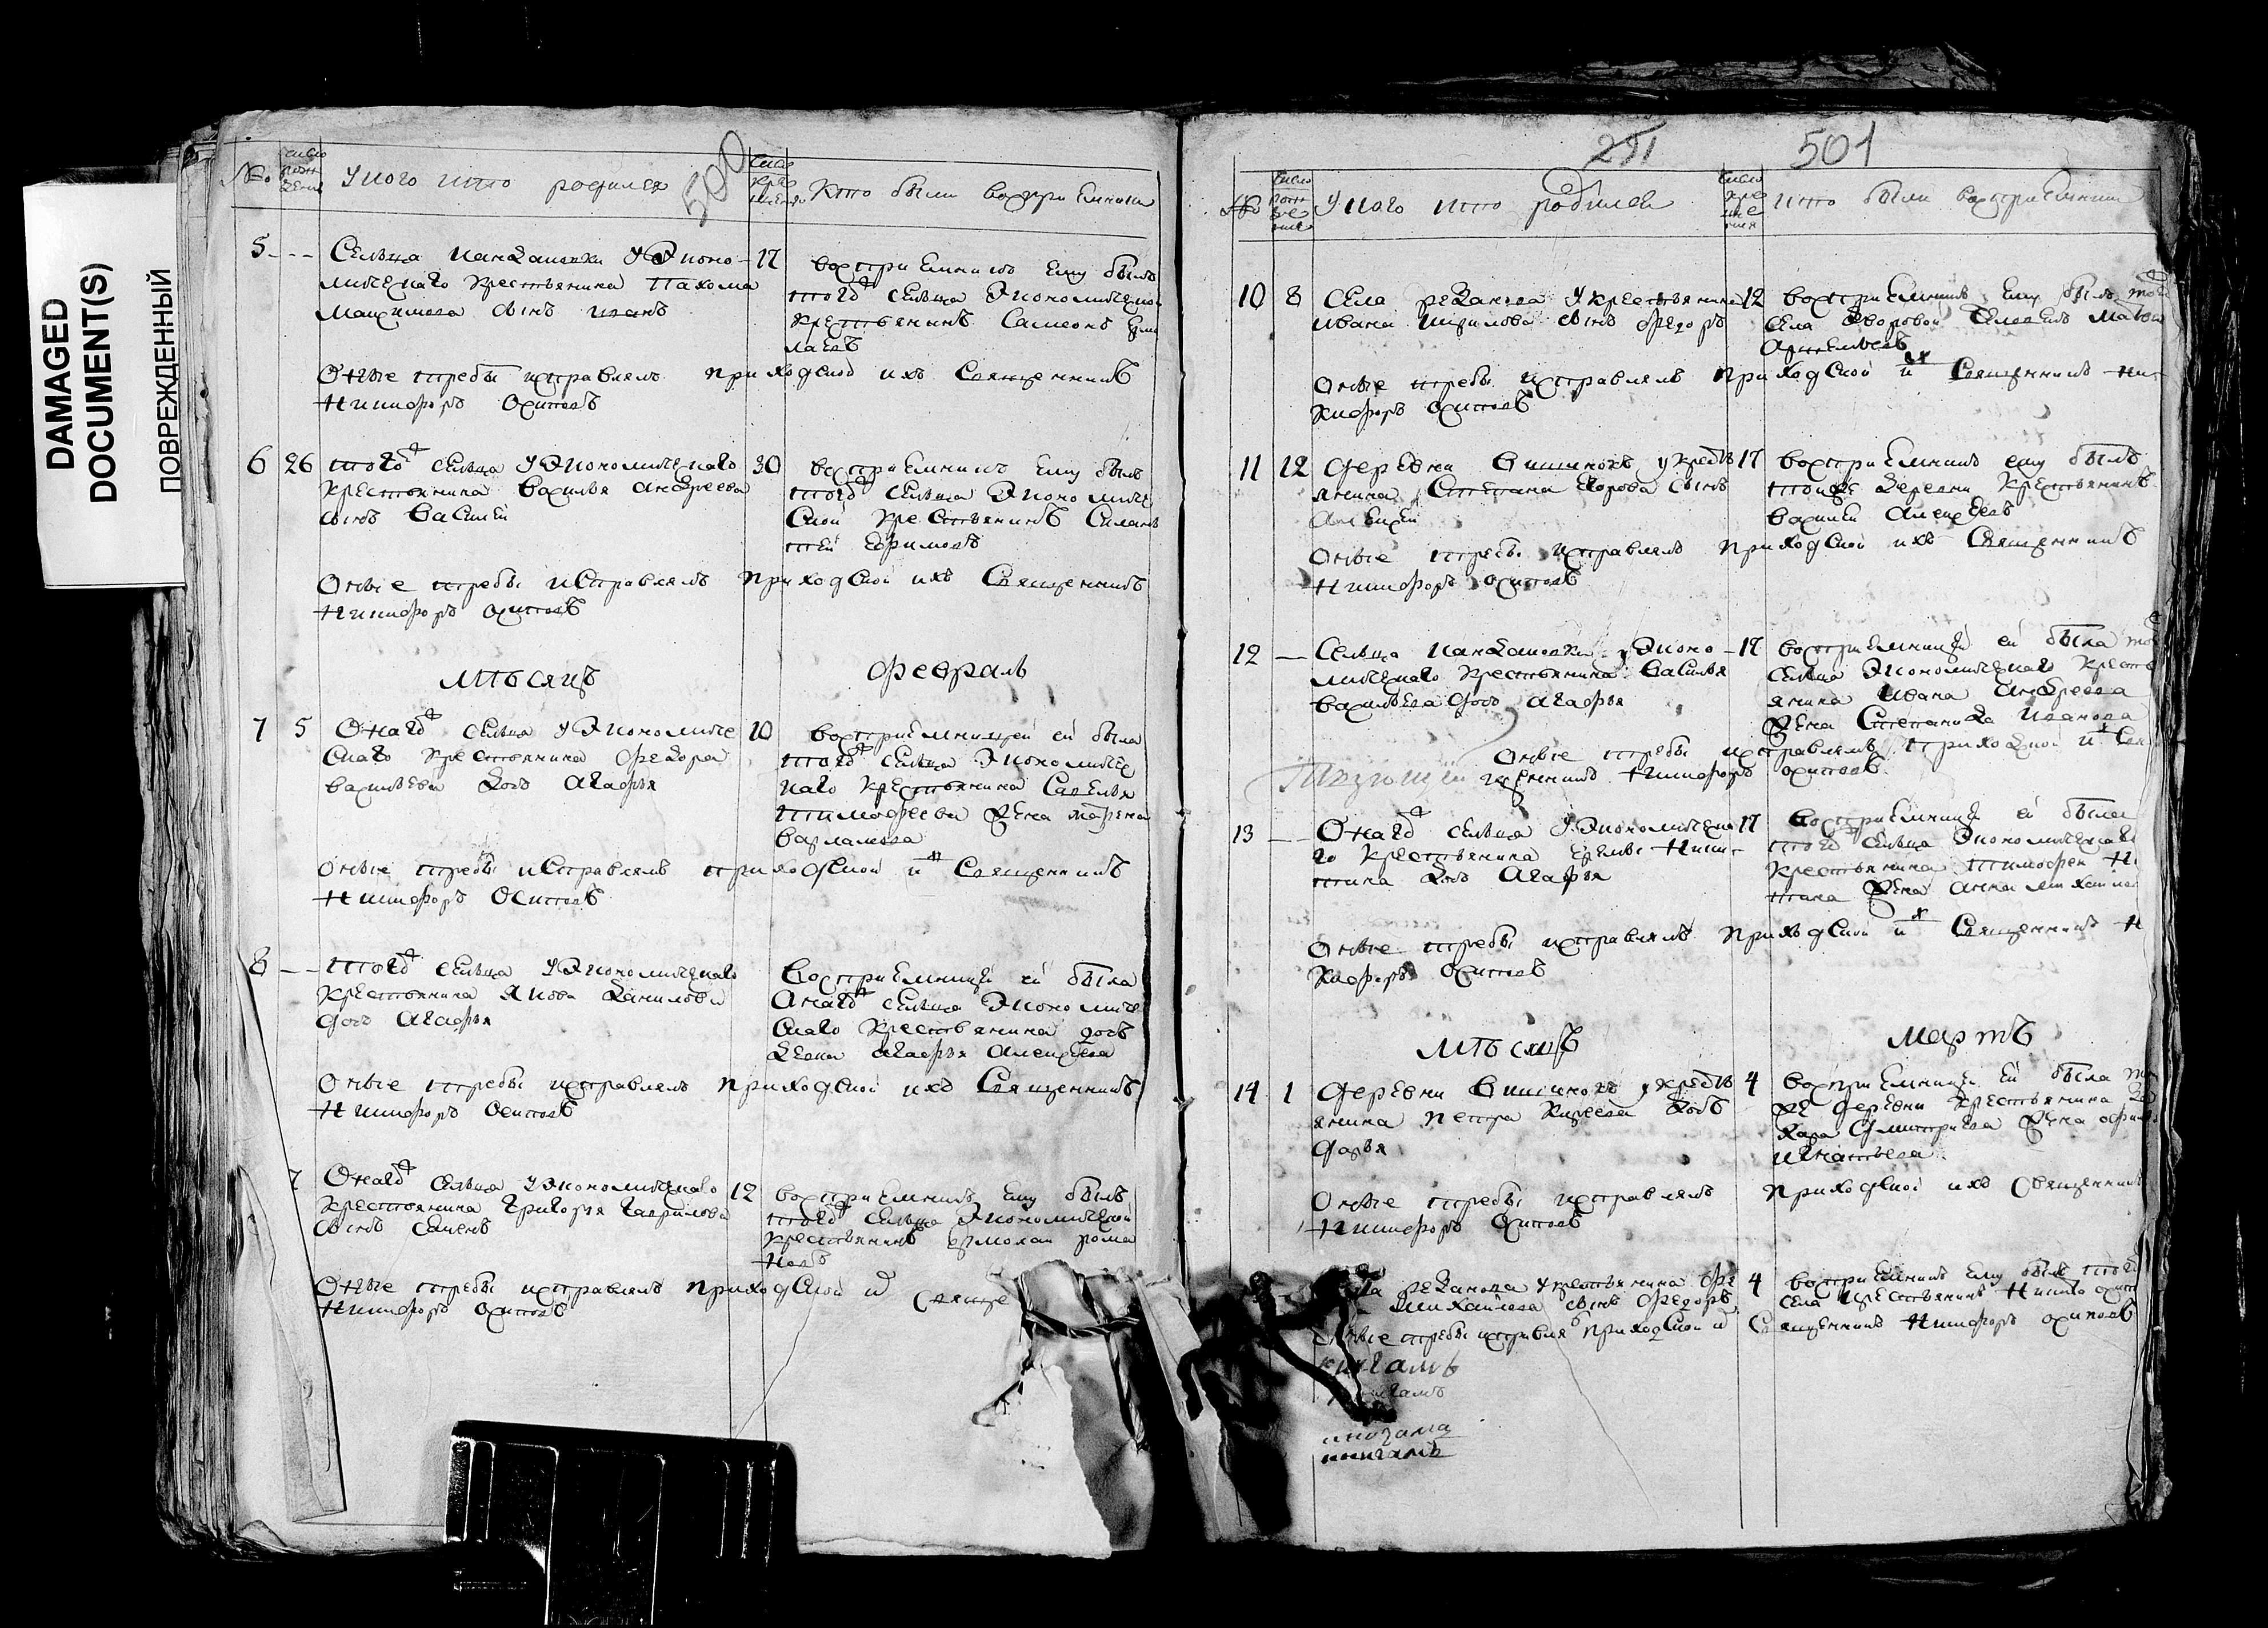 DAMAGED
DOCUMENT(S)
ПОВРЕЖДЕННЫЙ
500
№ число рож дения У кого кто родился число кре щения Кто были восприемники
5 --- Сельца У Эконо-
мическаго крестьянина Пахома
Максимова сынъ Иванъ
17 восприемникъ ему былъ
тогоже сельца Экономической
крестьянинъ Самсонъ
Оные требы исправлялъ приходской ихъ Священникъ
Никифоръ Осиповъ
6 26 тогоже сельца У Экономическаго
крестьянина Василья Андреева
сынъ Василей
30 восприемникъ ему былъ
тогоже сельца Экономиче
ской крестьянинъ Силан
тей Ефимовъ
Оные требы исправлялъ приходской ихъ Священникъ
Никифоръ Осиповъ
Мѣсяцъ Февраль
7 5 Онагоже сельца У Экономиче
скаго крестьянина Федора
Васильева дочь Агафья
10 восприемницей ей была
тогоже сельца Экономичес
каго крестьянина Савелья
Тимофеева жена Матрена
Варламова
Оные требы исправлялъ приходской их Священникъ
Никифоръ Осиповъ
8 -- тогоже сельца У Экономическаго
крестьянина Якова Данилова
дочь Агафья
Восприемницей ей была
Онагоже сельца Экономиче
скаго крестьянина дочь
девка Агафья Алексеева
Оные требы исправлялъ приходской ихъ Священникъ
Никифоръ Осиповъ
7 Онагоже сельца У Экономическаго
крестьянина Григорья Гаврилова
сынъ Семенъ
12 восприемникъ ему былъ
тогоже сельца Экономической
крестьянинъ Ермолай Рома
новъ
Оные требы исправлялъ приходской и Священ
Никифоръ Осиповъ
251 501
№ число рож де ние У кого кто родился число кре ще ния Кто были восприемники
10 8 Села Резанова У крестьянина
Ивана Кирилова сынъ Федоръ
12 восприемникъ ему былъ
села дворовой человекъ
Артемьевъ
Оные требы исправлялъ приходской их Священникъ Ни-
кифоръ Осиповъ
11 12 деревни У кресть
янина Степана Егорова сынъ
Алексей
17 восприемникъ ему былъ
тойже деревни крестьянинъ
Василей Алексеевъ
Оные требы исправлялъ приходской ихъ Священникъ
Никифоръ Осиповъ
12 -- Сельца У Эконо-
мическаго крестьянина Василья
Васильева дочь Агафья
17 восприемницей ей была
сельца Экономическаго кресть
янина Ивана Андреева
жена Степанида Иванова
Оные требы исправлялъ приходской их Свя
щенникъ Никифоръ Осиповъ
13 -- Онагоже сельца У Экономическа
го крестьянина Еремы Ники-
тина дочь Агафья
17 восприемницей ей была
тогоже сельца Экономическаго
крестьянина Тимофея Ни
тина жена Анна
Оные требы исправлялъ приходской их Священникъ Н
кифоръ Осиповъ
Мѣсяцъ Мартъ
14 1 деревни У кресть
янина Петра Киреева дочь
Дарья
4 восприемницей ей была
же деревни крестьянина За
хара Дмитриева жена
Игнатьева
Оные требы исправлялъ приходской ихъ Священникъ
Никифоръ Осиповъ
Резанова У крестьянина
Михайлова сынъ Федоръ
4 восприемникъ ему былъ
села крестьянинъ
Оные требы исправля приходской и Священникъ Никифоръ Осиповъ
книгамъ